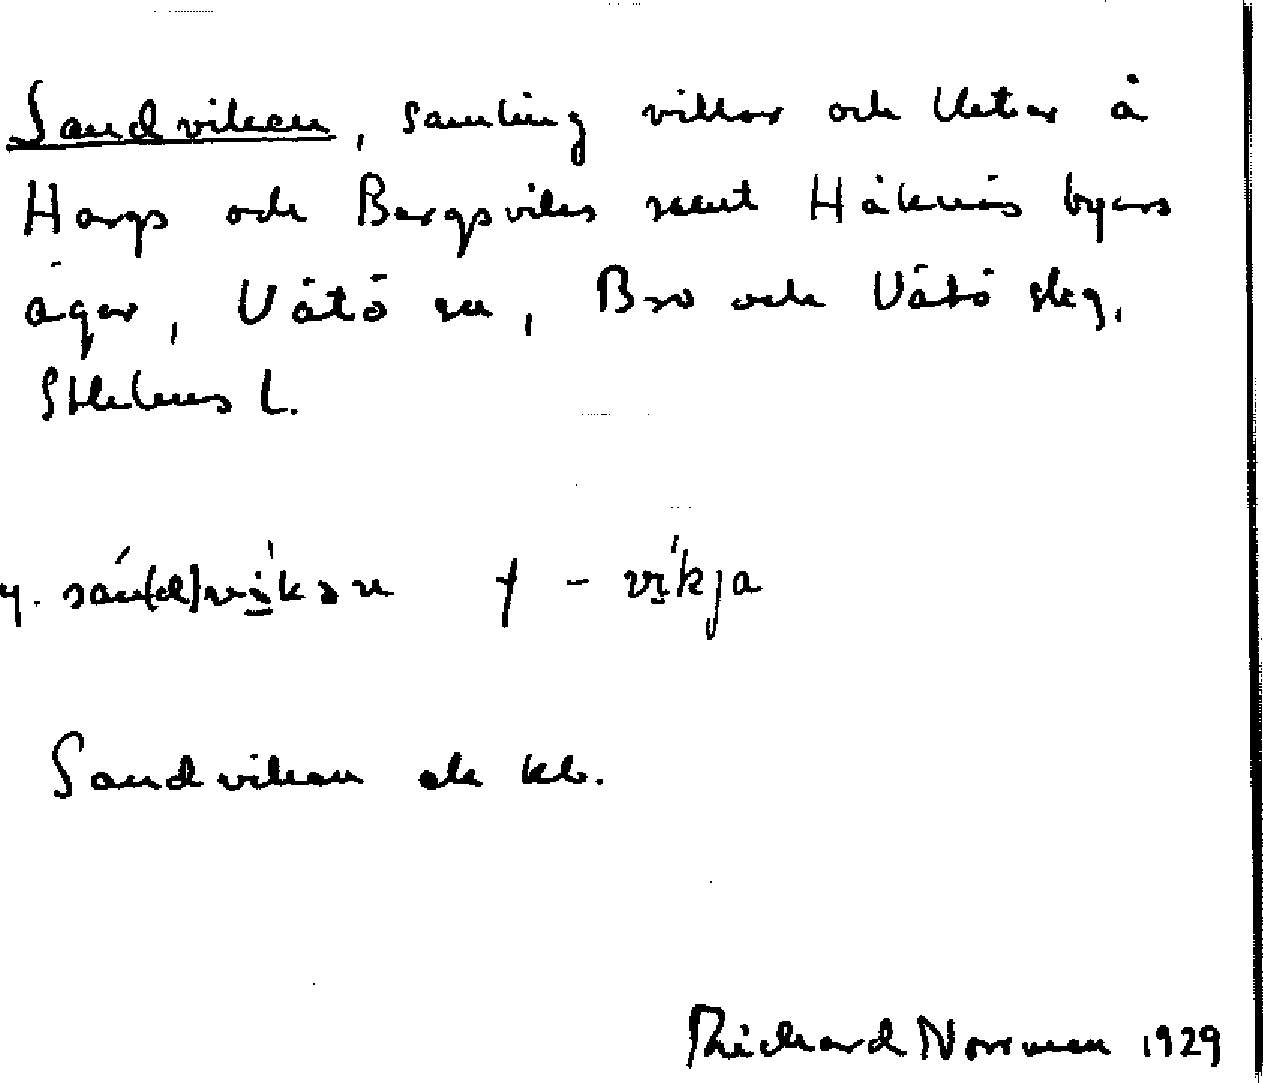 Sandviken, samling villor och
Hargs och Bergsviks samt Håknäs byars
ägor, Vätö sn, Bro och Vätö skg,
Sthlms l.
y. sán(d)vìkən † - víkja
Sandviken ek kb.
Richard Norrman 1929